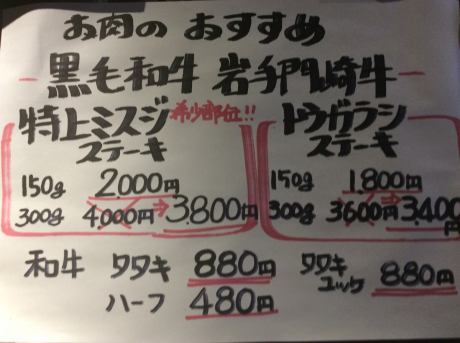 お肉のおすすめ
黒毛和牛 岩手門崎牛
特上ミスジ 希少部位!!
ステーキ
150g 2.000円
300g 4.000円→3.800円
トウガラシ
ステーキ
150g 1.800円
300g 3600円→3.400円
和牛 タタキ 880円
ハーフ 480円
タタキ
ユッケ 880円